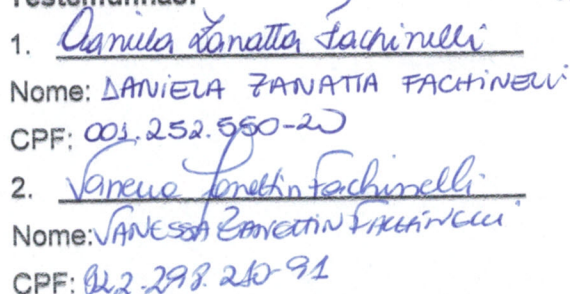 Testemunhas:
1. Daniela Zanatta Fachinelli
Nome: DANIELA ZANATTA FACHINELLI
CPF: 001.252.550-20
2. Vanessa Zanettin Fachinelli
Nome: VANESSA ZANETTIN FACHINELLI
CPF: 022.298.210-91